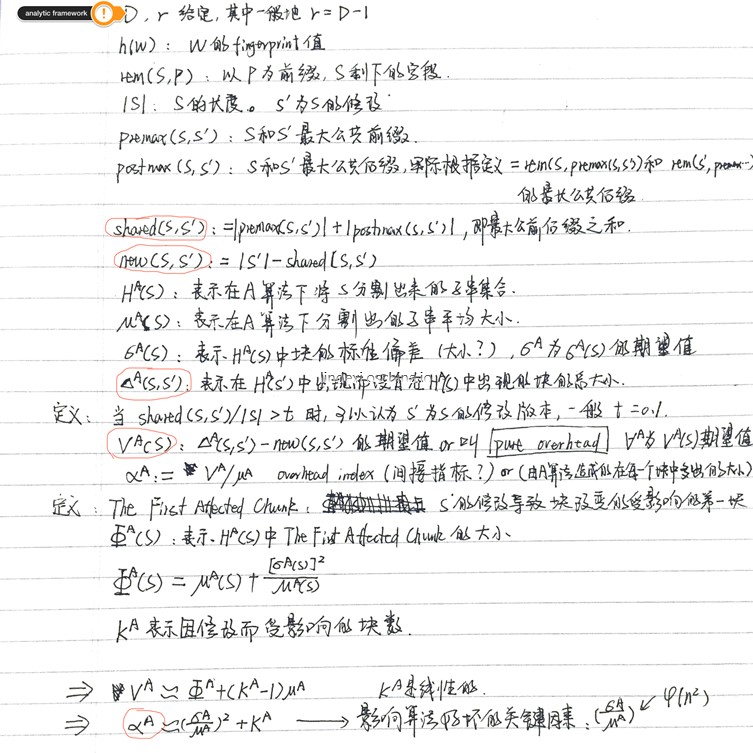 analytic framework
D, r 给定, 其中一般地 r = D-1
h(W): W的fingerprint值
rem(S,P): 以P为前缀, S剩下的字段.
|S|: S的长度。 S'为S的修改
premax(S,S'): S和S'最大公共前缀.
postmax(S,S'): S和S'最大公共后缀, 实际根据定义 = rem(S, premax(S,S'))和 rem(S', premax…)
的最长公共后缀.
shared(S,S'): =|premax(S,S')|+|postmax(S,S')|, 即最大公前后缀之和.
new(S,S'): = |S'| - shared(S,S')
Hᴬ(S): 表示在A算法下将S分割出来的子串集合.
μᴬ(S): 表示在A算法下分割出的子串平均大小.
σᴬ(S): 表示Hᴬ(S)中块的标准偏差(大小?), σᴬ为σᴬ(S)的期望值
Δᴬ(S,S'): 表示在Hᴬ(S')中出现而没有在Hᴬ(S)中出现的块的总大小.
定义: 当 shared(S,S')/|S| > t 时, 可以认为S'为S的修改版本, 一般 t=0.1.
Vᴬ(S): Δᴬ(S,S')-new(S,S') 的期望值 or 叫 pure overhead Vᴬ为Vᴬ(S)期望值
αᴬ: = Vᴬ/μᴬ overhead index (间接指标?) or (由A算法造成的在每个块中多出的大小)
定义: The First Affected Chunk: S的修改导致块改变的受影响的第一块
Φᴬ(S): 表示Hᴬ(S)中 The First Affected Chunk 的大小
Φᴬ(S) = μᴬ(S) + [σᴬ(S)]²/μᴬ(S)
Kᴬ 表示因修改而受影响的块数.
⇒ Vᴬ ≈ Φᴬ+(Kᴬ-1)μᴬ Kᴬ是线性的.
⇒ αᴬ ≈ (σᴬ/μᴬ)² + Kᴬ → 影响算法好坏的关键因素: (σᴬ/μᴬ) ↙ φ(n²)